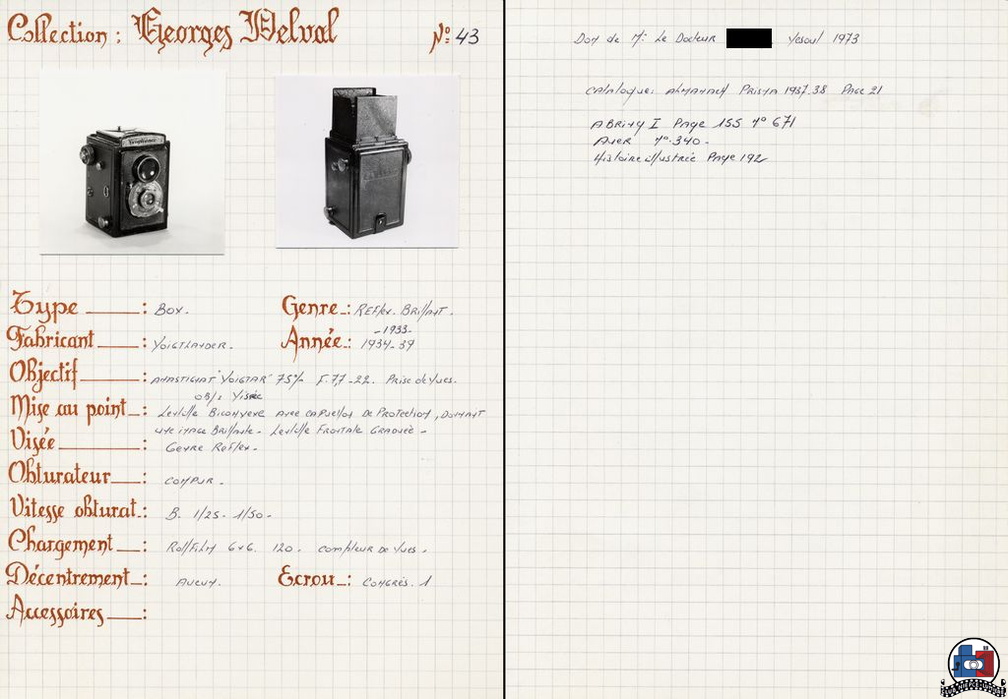 Collection : Georges Delval
Nº 43
Type : Box.
Genre : Reflex. Brillant.
Fabricant : Voigtlander.
-1933-
Année : 1934-39
Objectif : Anastigmat "Voigtar" 75% F. 7,7-22. Prise de Vues.
Obj: Visée
Mise au point : Lentille Biconvexe avec capuchon de Protection, Donnant
une image Brillante. Lentille Frontale Graduée -
Visée : Genre Reflex.
Obturateur : Compur.
Vitesse obturat. : B. 1/25 - 1/50 -
Chargement : Roll Film 6x6. 120. compteur de vues.
Décentrement : Aucun.
Ecrou : Congrès. 1
Accessoires :
Don de Mr Le Docteur Vesoul 1973
Catalogue: Almanach Prisma 1937.38 Page 21
Abring I Page 155 nº 671
Auer nº 340.
Histoire illustrée Page 192